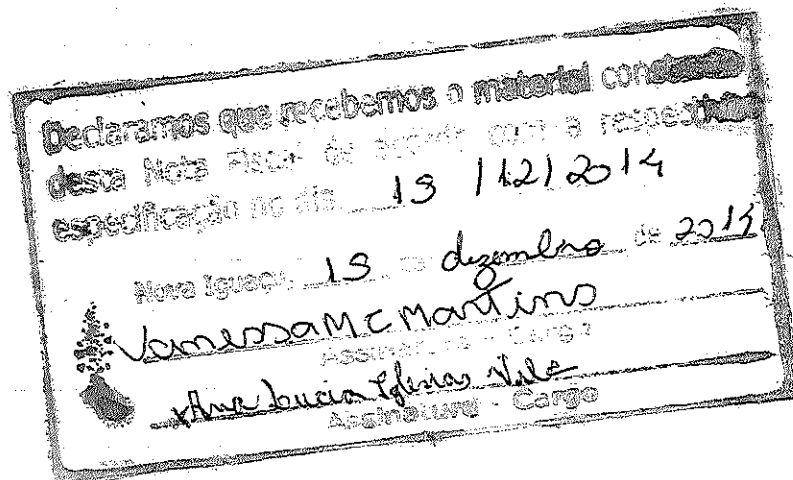 Declaramos que recebemos o material constante
desta Nota Fiscal de acordo com a respectiva
especificação no dia 19 / 12 / 2014
Nova Iguaçu, 19 de dezembro de 2014
Vanessa M C Martins
Assinatura - Cargo
Ana Lucia Iglesias
Assinatura - Cargo